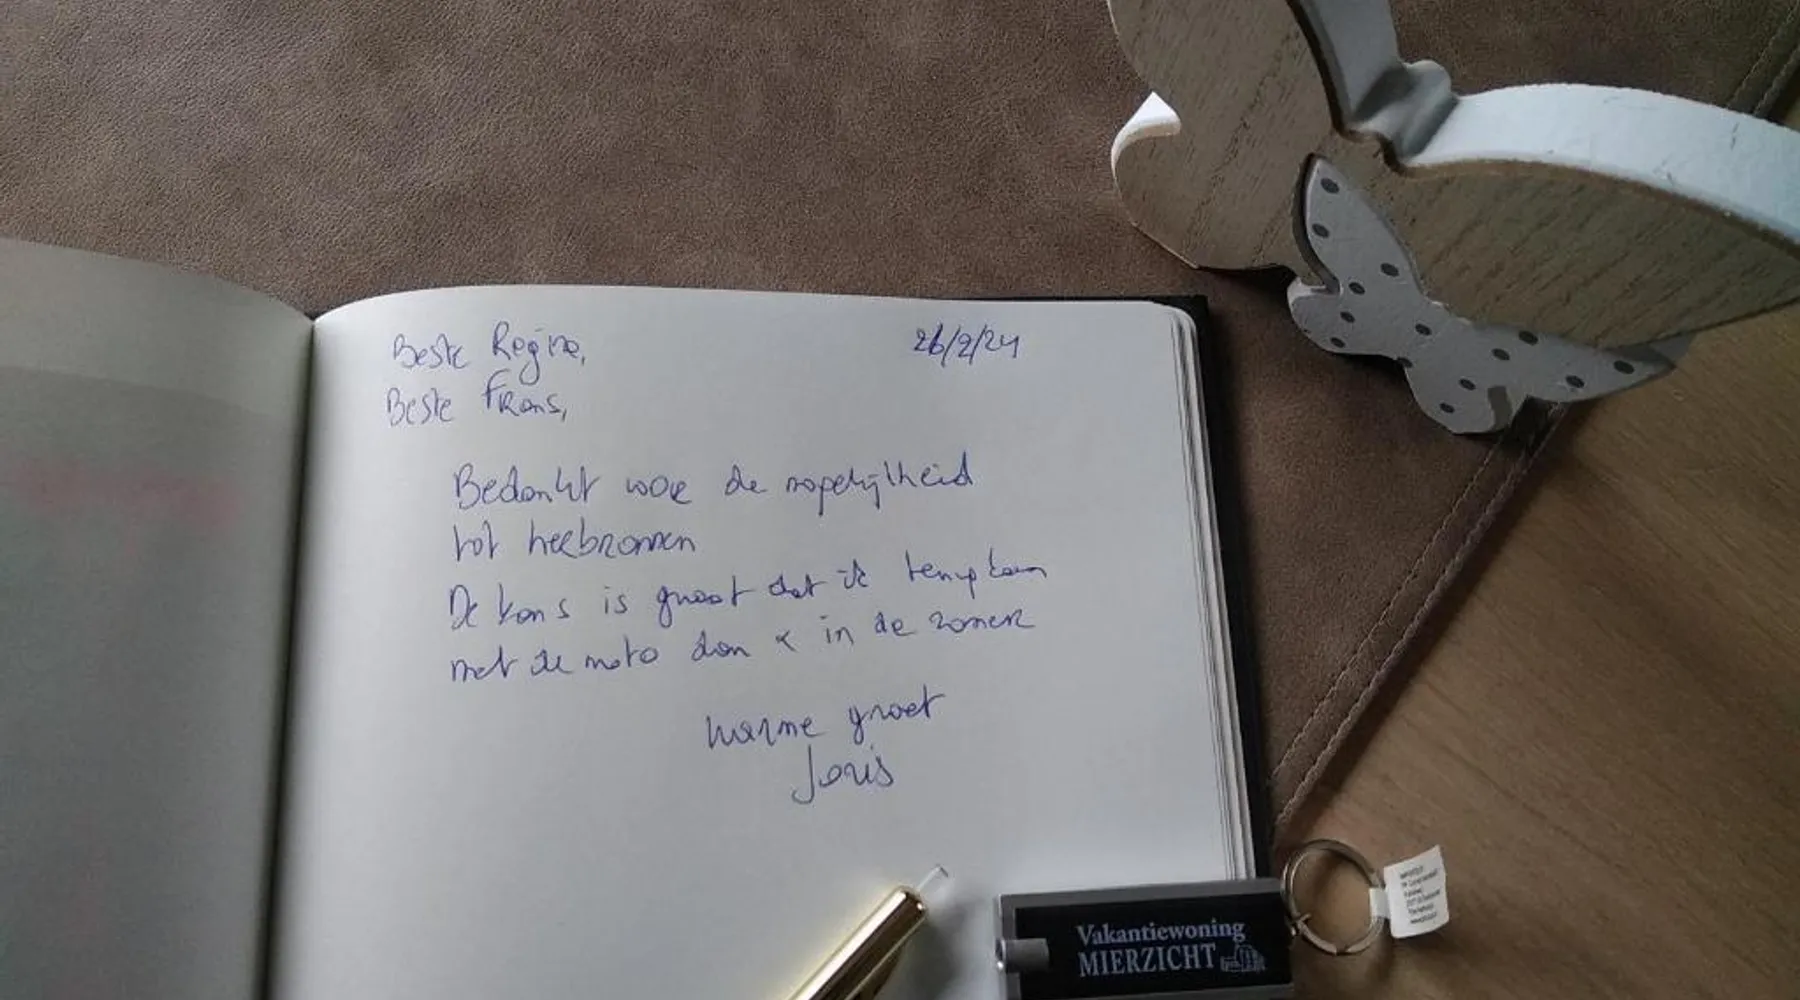 Beste Regine,
26/2/24
Beste Frans,
Bedankt voor de mogelijkheid
tot herbronnen
De kans is groot dat ik terug kom
met de moto dan x in de zomer
Warme groet
Joris
Vakantiewoning
MIERZICHT